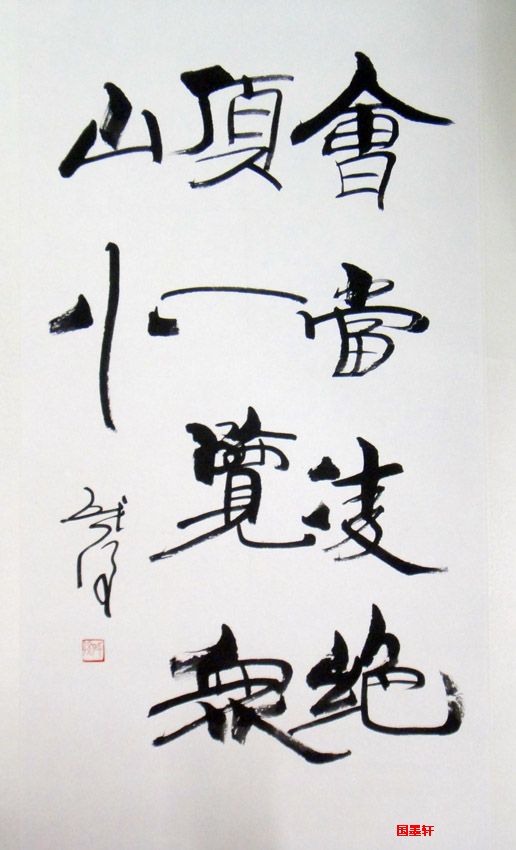 會當凌絕
頂一覽衆
山小
国墨轩